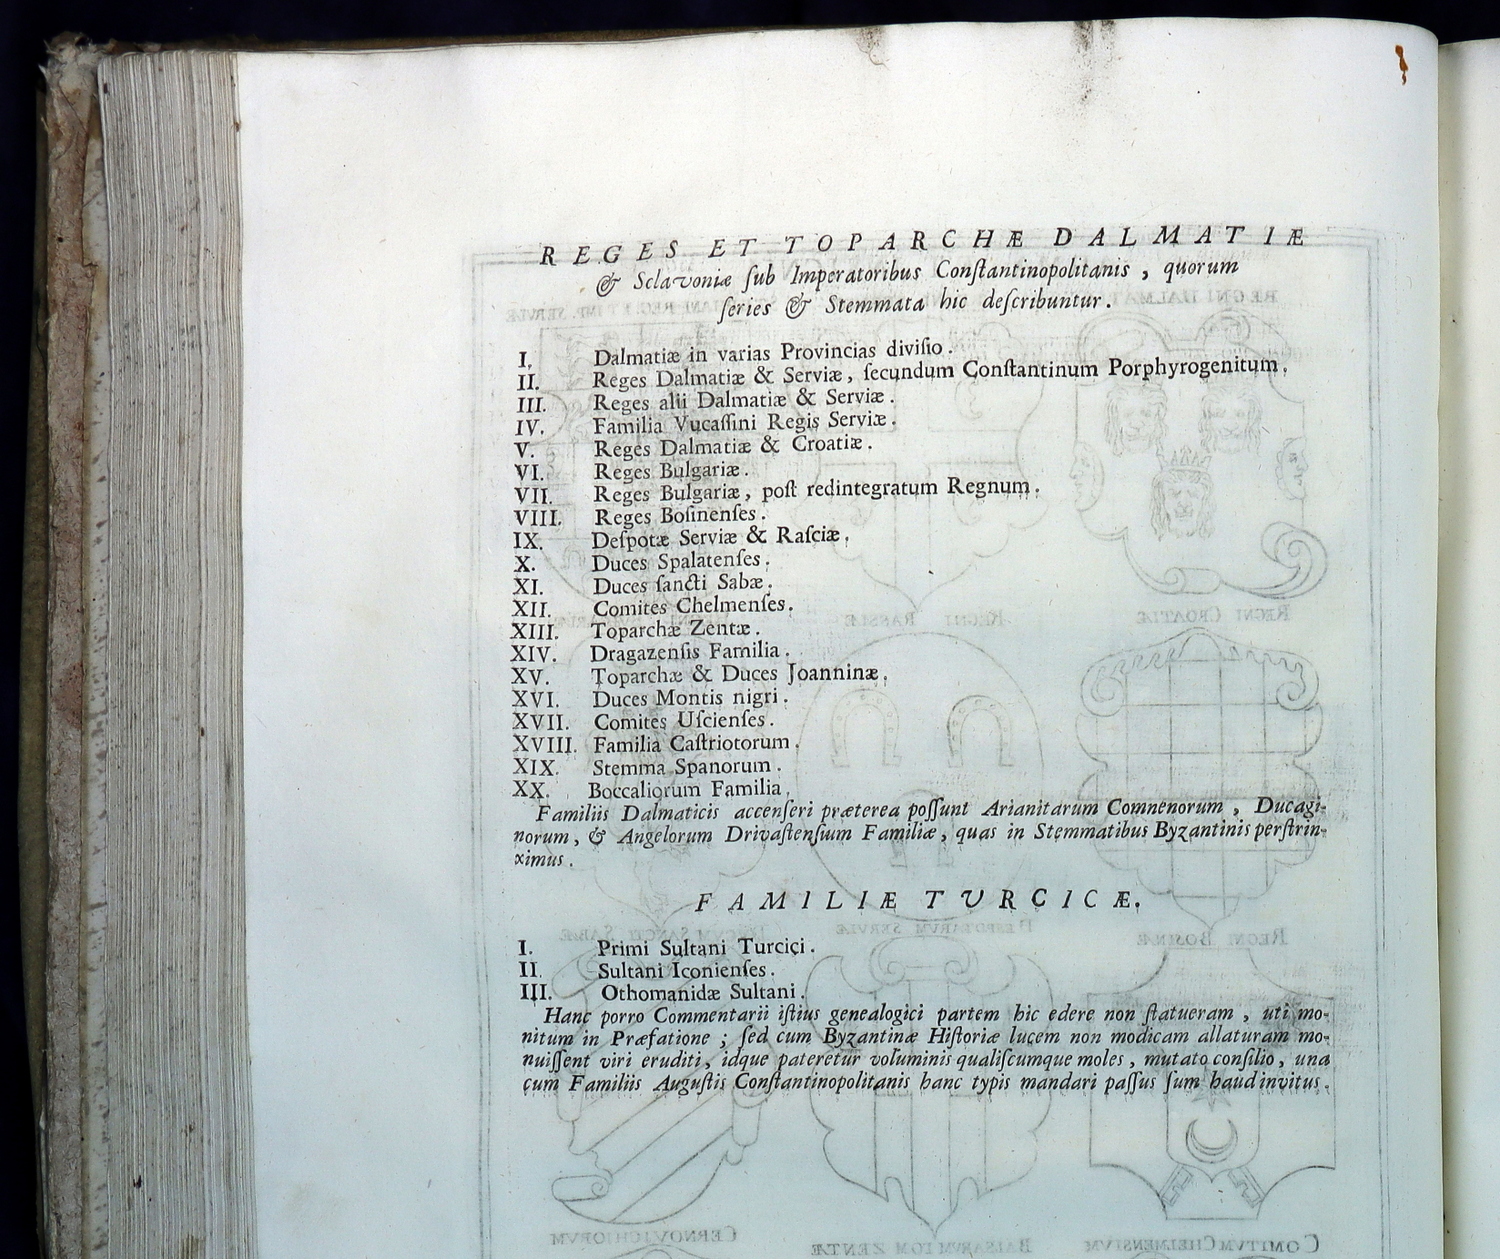 REGES ET TOPARCHÆ DALMATIÆ
& Sclavoniæ ſub Imperatoribus Conſtantinopolitanis , quorum
ſeries & Stemmata hic deſcribuntur .
I. Dalmatiæ in varias Provincias diviſio .
II. Reges Dalmatiæ & Serviæ , ſecundum Conſtantinum Porphyrogenitum .
III. Reges alii Dalmatiæ & Serviæ .
IV. Familia Vucaſſini Regis Serviæ .
V. Reges Dalmatiæ & Croatiæ .
VI. Reges Bulgariæ .
VII. Reges Bulgariæ , poſt redintegratum Regnum .
VIII. Reges Boſinenſes .
IX. Deſpotæ Serviæ & Raſciæ .
X. Duces Spalatenſes .
XI. Duces ſancti Sabæ .
XII. Comites Chelmenſes .
XIII. Toparchæ Zentæ .
XIV. Dragazenſis Familia .
XV. Toparchæ & Duces Joanninæ .
XVI. Duces Montis nigri .
XVII. Comites Uſcienſes .
XVIII. Familia Caſtriotorum .
XIX. Stemma Spanorum .
XX. Boccaliorum Familia .
Familiis Dalmaticis accenſeri præterea poſſunt Arianitarum Comnenorum , Ducagi-
norum , & Angelorum Drivaſtenſium Familiæ , quas in Stemmatibus Byzantinis perſtrin-
ximus .
FAMILIÆ TVRCICÆ.
I. Primi Sultani Turcici .
II. Sultani Iconienſes .
III. Othomanidæ Sultani .
Hanc porro Commentarii iſtius genealogici partem hic edere non ſtatueram , uti mo-
nitum in Præfatione ; ſed cum Byzantinæ Hiſtoriæ lucem non modicam allaturam mo-
nuiſſent viri eruditi , idque pateretur voluminis qualiſcumque moles , mutato conſilio , una
cum Familiis Auguſtis Conſtantinopolitanis hanc typis mandari paſſus ſum haud invitus .